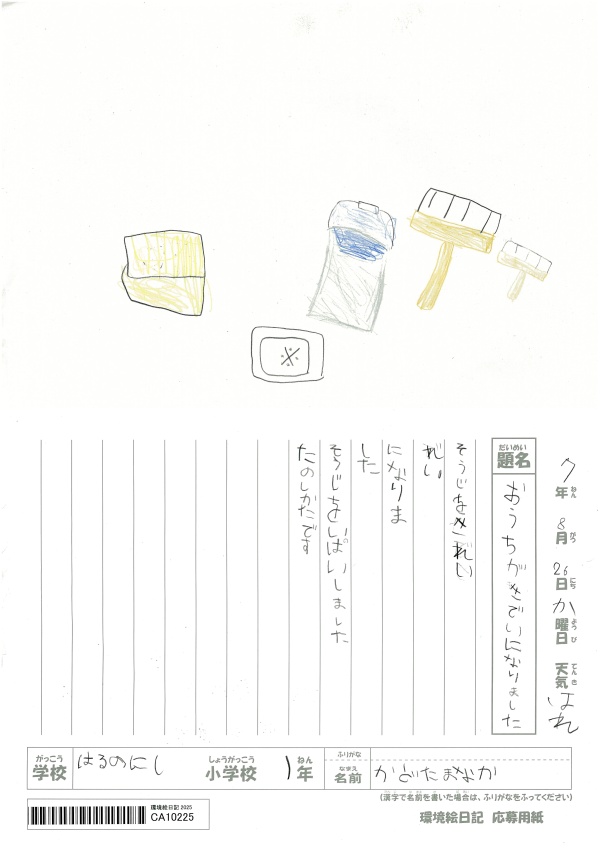 7年 8月 26日 か曜日 天気 はれ
ねん がつ にち ようび てんき
だいめい
題名
おうちがきでいになりました
そうじをきれい
れい
になりま
した
そうじをしぱいしました
たのしかたです
がっこう
学校
はるのにし
しょうがっこう
小学校
1年
ねん
ふりがな
なまえ
名前
かどたまなか
(漢字で名前を書いた場合は、ふりがなをふってください)
環境絵日記 2025
CA10225
環境絵日記 応募用紙